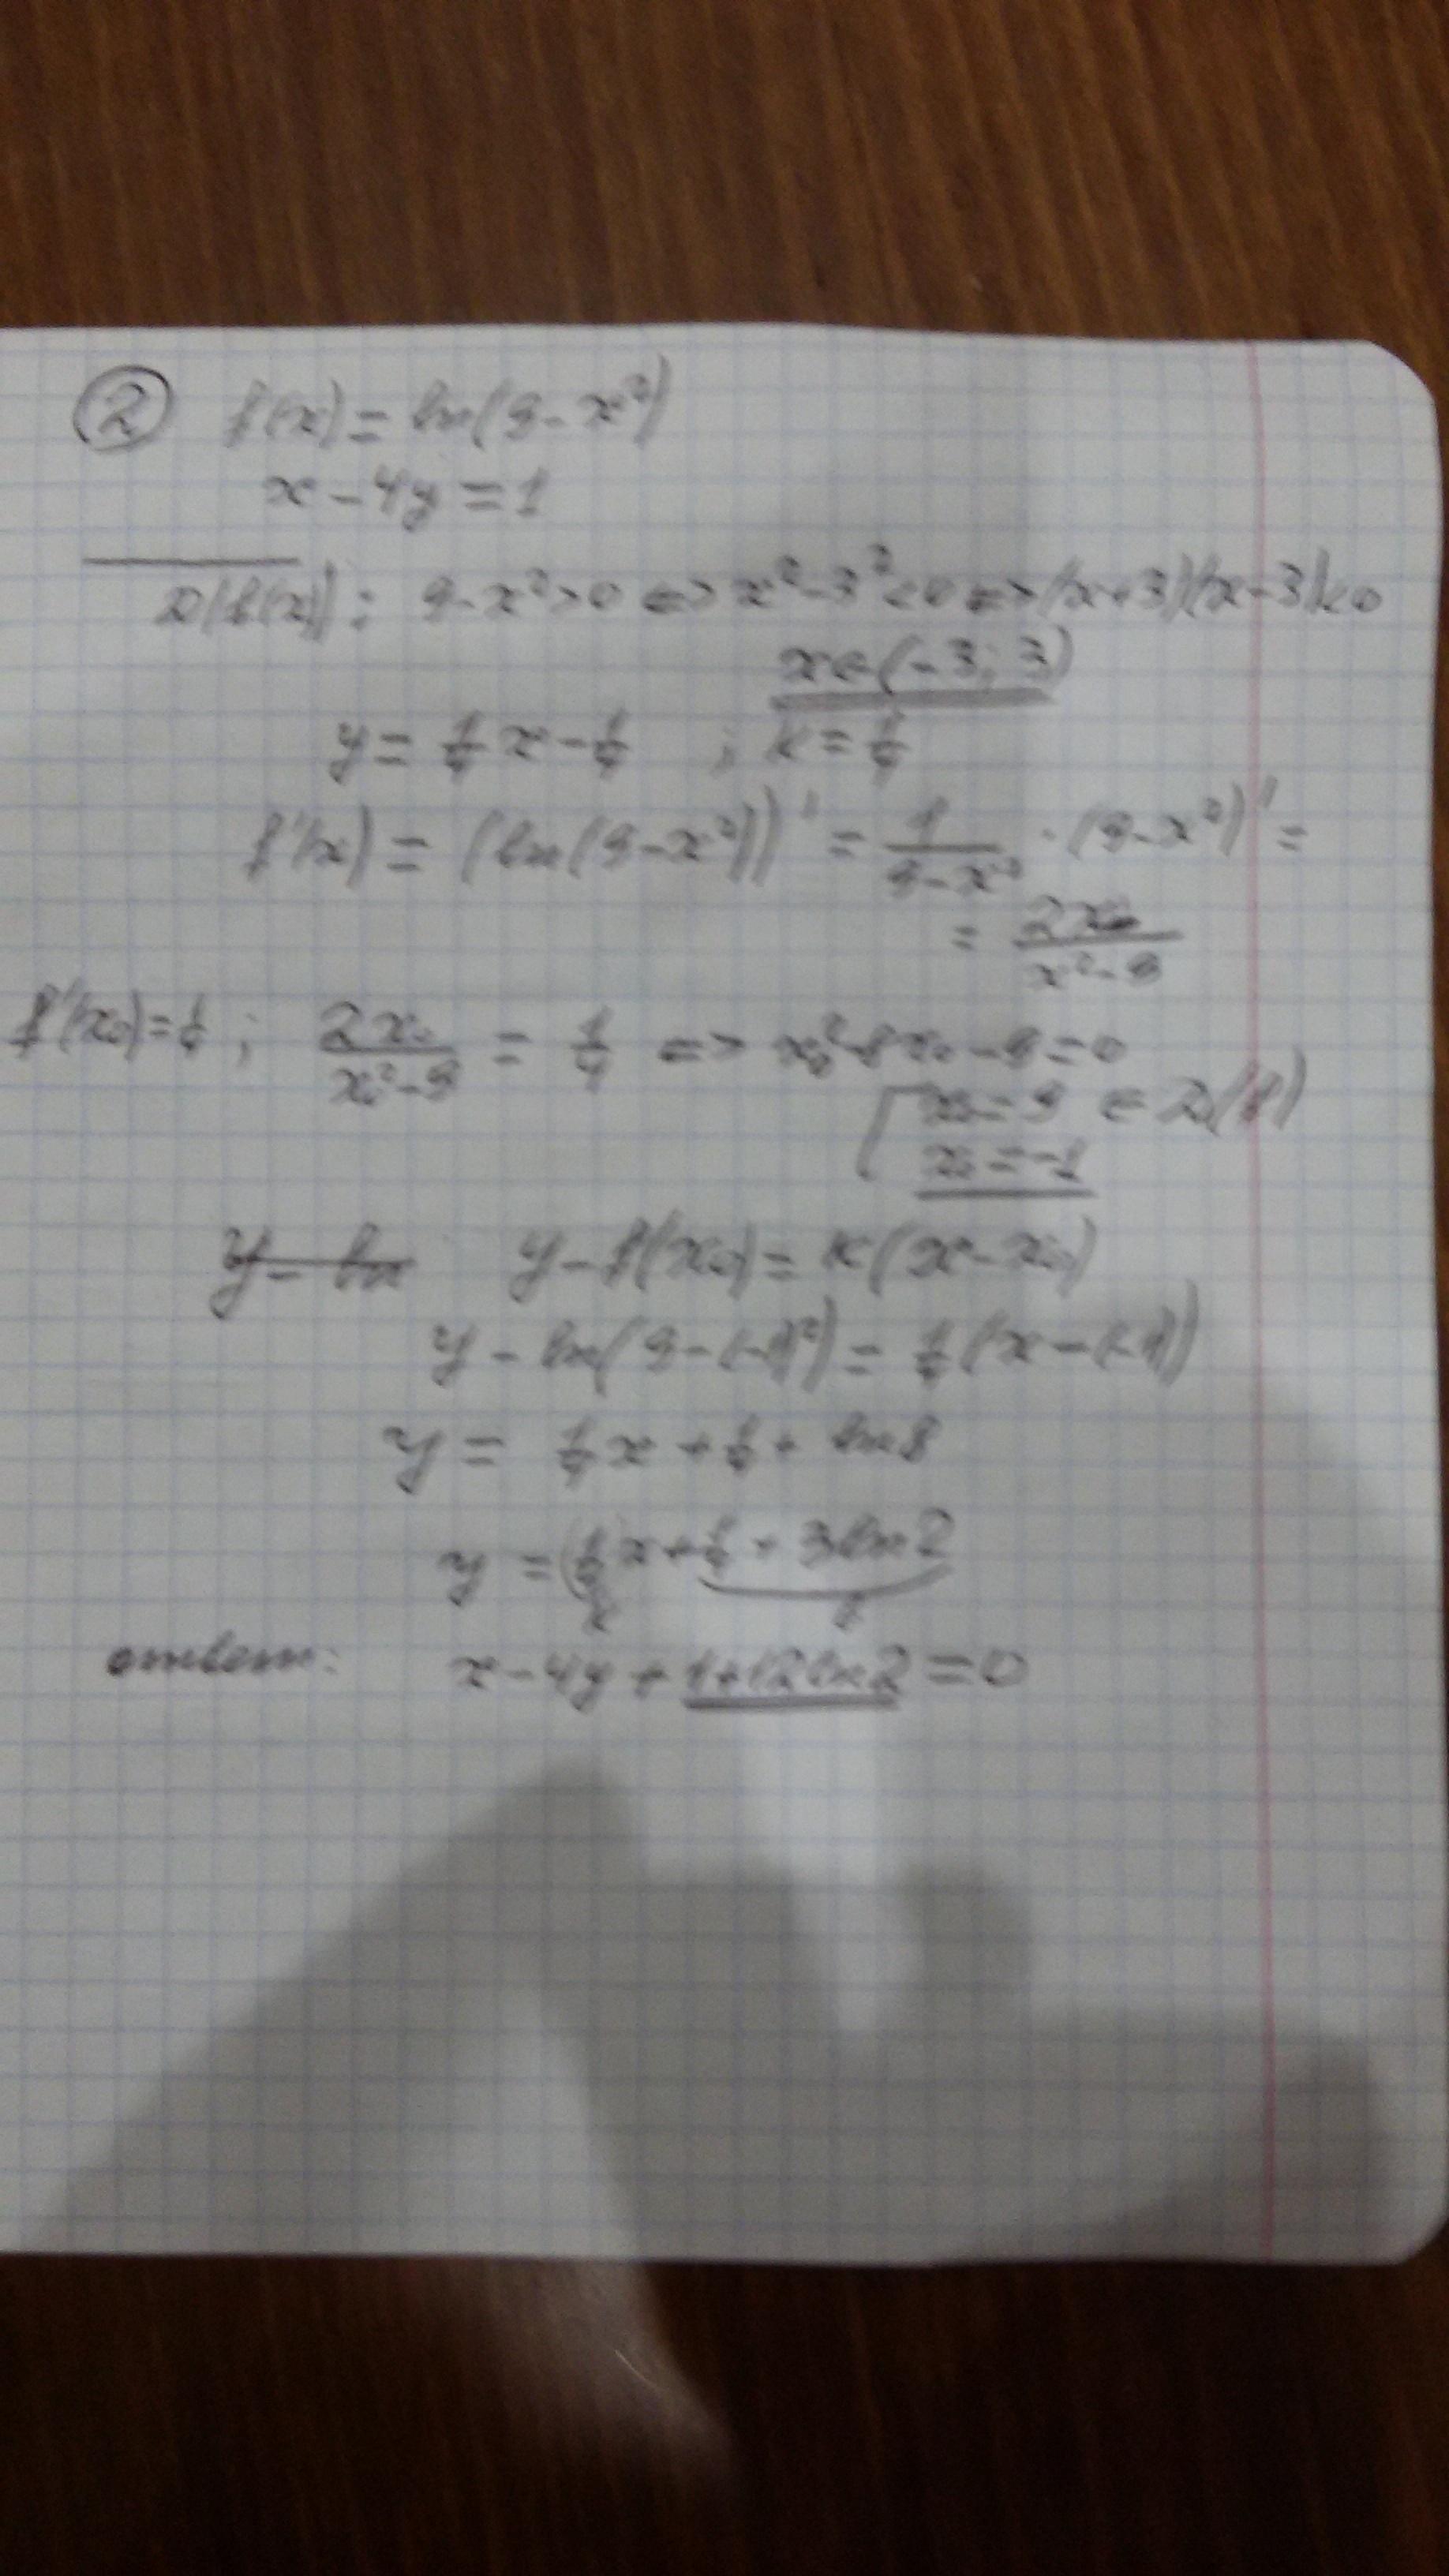 ② f(x) = ln(9-x²)
x - 4y = 1
D(f(x)): 9-x²>0 <=> x²-3²<0 <=> (x+3)(x-3)<0
x∈(-3; 3)
y = 1/4 x - 1/4 ; k = 1/4
f'(x) = (ln(9-x²))' = 1/(9-x²) · (9-x²)' =
= 2x/(x²-9)
f'(x₀)=1/4 ; 2x₀/(x₀²-9) = 1/4 <=> x₀²-8x₀-9=0
[ x₀=9 ∈ D(f)
x₀=-1
y - ln y - f(x₀) = k(x-x₀)
y - ln(9-(-1)²) = 1/4(x-(-1))
y = 1/4 x + 1/4 + ln8
y = 1/4 x + 1/4 + 3ln2
ответ: x - 4y + 1+12ln2 = 0